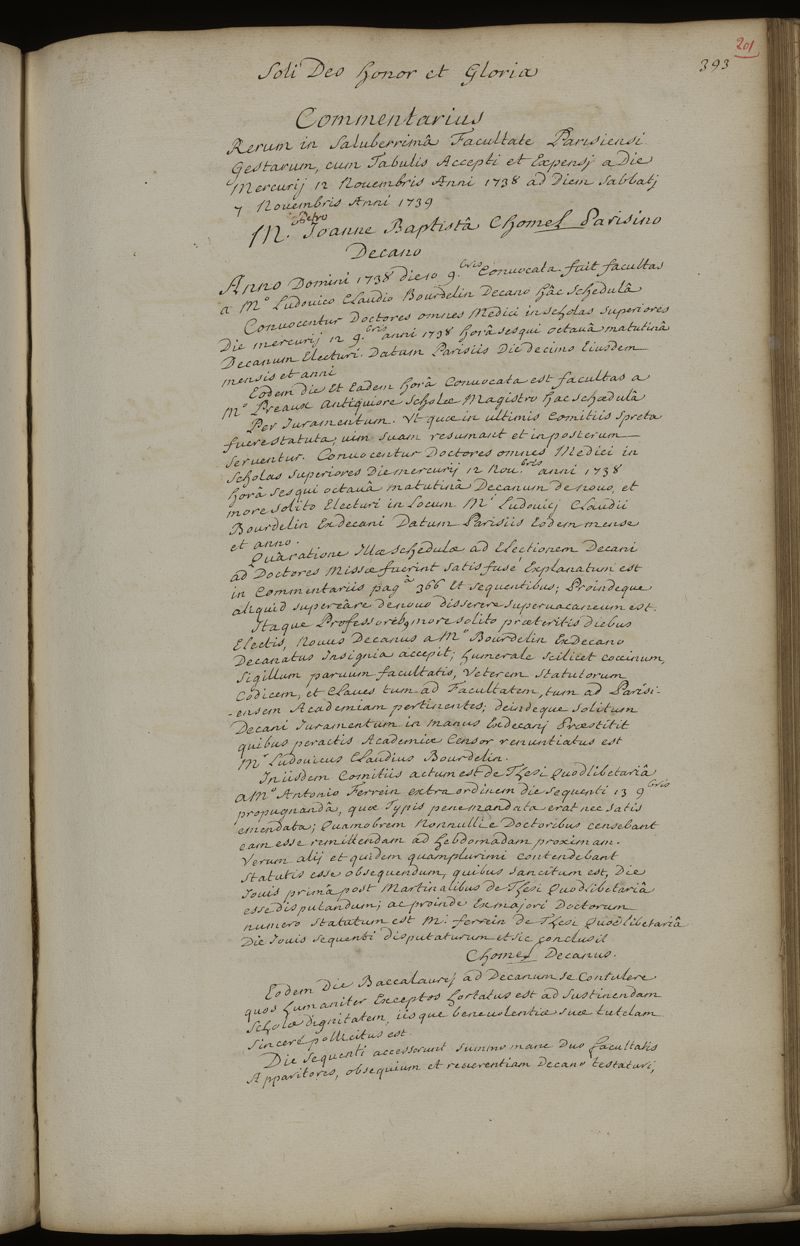 201
393
Soli Deo honor et Gloria
Commentarius
Rerum in Saluberrimâ Facultate Parisiensi
Gestarum, cum Tabulis Accepti et Expensj a Die
Mercurij 12 Nouembris Anni 1738 ad Diem Sabbatj
7 Nouembris Anni 1739
Petro
M. Joanne Baptistâ Chomel Parisino
Decano
Anno Domini 1738 die 10 9.bris Conuocata fuit facultas
a M.o Ludouico Claudio Bourdelin Decano hâc schedulâ
Conuocentur Doctores omnes Medici in scholas superiores
Die mercurij 12 9.bris anni 1738 horâ sesqui octauâ matutinâ
Decanum Electuri. Datum Parisiis Die decimo Eiusdem
mensis et anni
Eodem die Et Eadem horâ Conuocata est facultas a
M.o Preaux antiquiore scholæ Magistro hac schœdulâ
Per Juramentum. Vt quæ in ultimis Comitiis spreta
fuere statuta, uim suam resumant et in posterum
seruentur. Conuocentur Doctores omnes Medici in
scholas superiores Die mercurij 12 Nou.bris anni 1738
horâ sesqui octauâ matutinâ Decanum de nouo, et
more solito Electuri in Locum M.i Ludouicj Claudii
Bourdelin Exdecani Datum Parisiis Eodem mense
et anno.
Quâ ratione Illæ schedulæ ad Electionem Decani
ad Doctores Missæ fuerint satis fuse Explanatum est
in Commentariis pag.a 366 Et sequentibus; Proindeque
aliquid super eâ re denouo disserere superuacaneum est.
Itaque Professoribq more solito præteritis diebus
Electis, Nouus Decanus a M.o Bourdelin ExDecano
Decanatus Insignia accepit; humerale scilicet coccinum,
sigillum paruum facultatis, Veterem statutorum
Codicem, et Claues tum ad Facultatem, tum ad Parisi-
-ensem Academiam pertinentes; deindeque solitum
Decani Juramentum in manus Exdecanj Præstitit
quibus peractis Academiæ Censor renuntiatus est
M.r Ludouicus Claudius Bourdelin.
In iisdem Comitiis actum est de Thesi Quodlibetariâ
a M.o Antonio Ferrein extra ordinem die sequenti 13 9bris
propugnandâ, quæ Typis pene mandata erat nec satis
emendata; Quamobrem Nonnulli e Doctoribus censebant
eam esse remittendam ad hebdomadam proximam.
Verum alij et quidem quamplurimi contendebant
statutis esse obsequendum, quibus sancitum est, Die
Jouis primâ post Martinalibus de Thesi Quodlibetariâ
esse disputandum; ac proinde Ex majori Doctorum
numero statutum est M. ferrein de Thesi Quodlibetariâ
Die Jouis sequenti disputaturum et sic conclusit
Chomel Decanus.
Eodem Die Baccalaurej ad Decanum se Contulere
quos humaniter Exceptos hortatus est ad sustinendam
scholæ dignitatem, iisque beneuolentiæ suæ tutelam
sincerè pollicitus est
Die sequenti accesserunt summo mane Duo facultatis
Apparitores, obsequium et reuerentiam Decano testaturi,